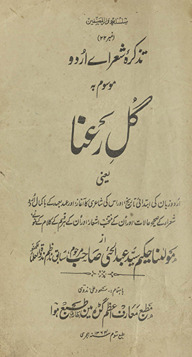 سلسلۂ دار المصنفین
(نمبر ۲۲)
تذکرۂ شعراے اُردو
موسوم بہ
گلِ رعنا
یعنی
اردو زبان کی ابتدائی تاریخ اور اس کی شاعری کا آغاز اور عہد بعہد کے باکمال اردو
شعراء کے صحیح حالات اور ان کے منتخب اشعار
از
مولٰنا حکیم سید عبد الحی صاحب مرحوم سابق ناظم ندوۃ العلماء
باہتمام مسعود علی ندوی
مطبع معارف اعظم گڑھ میں طبع ہوا
طبع سوم